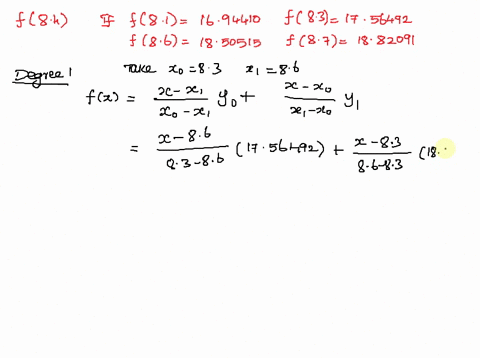 f(8.4) If f(8.1) = 16.94410 f(8.3) = 17.56492
f(8.6) = 18.50515 f(8.7) = 18.82091
Degree 1 Take x₀ = 8.3 x₁ = 8.6
f(x) = (x - x₁)/(x₀ - x₁) y₀ + (x - x₀)/(x₁ - x₀) y₁
= (x - 8.6)/(8.3 - 8.6) (17.56492) + (x - 8.3)/(8.6 - 8.3) (18.